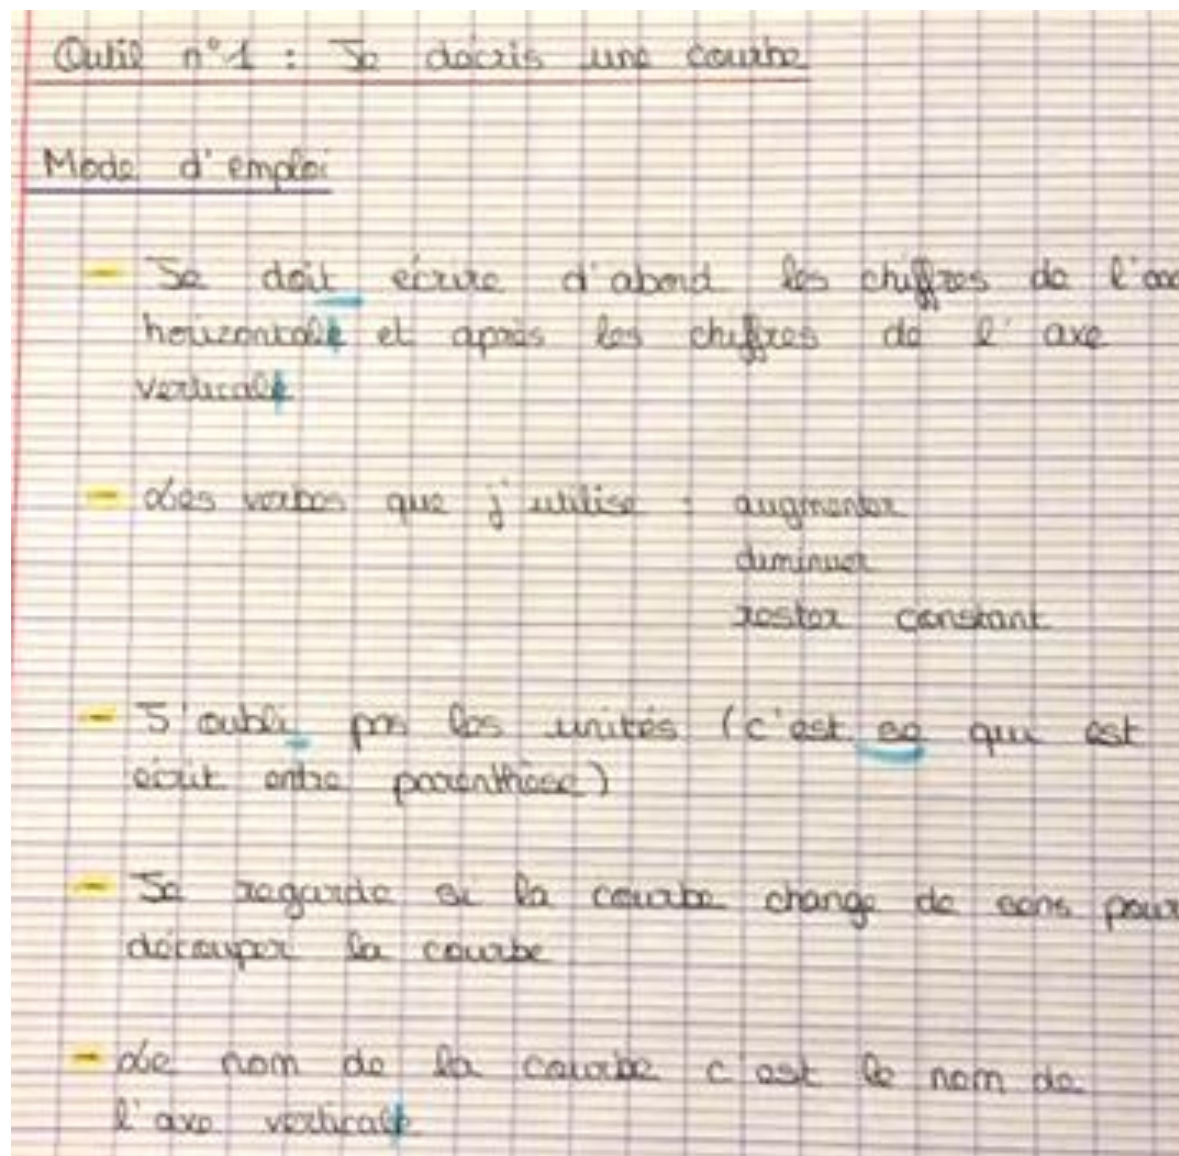 Outil n°1 : Je décris une courbe
Mode d'emploi
- Je doit écrire d'abord les chiffres de l'axe
horizontale et après les chiffres de l'axe
verticale
- Les verbes que j'utilise : augmenter
diminuer
rester constant
- J'oubli pas les unités (c'est se qui est
écrit entre parenthèse)
- Je regarde si la courbe change de sens pour
découper la courbe
- Le nom de la courbe c'est le nom de
l'axe verticale